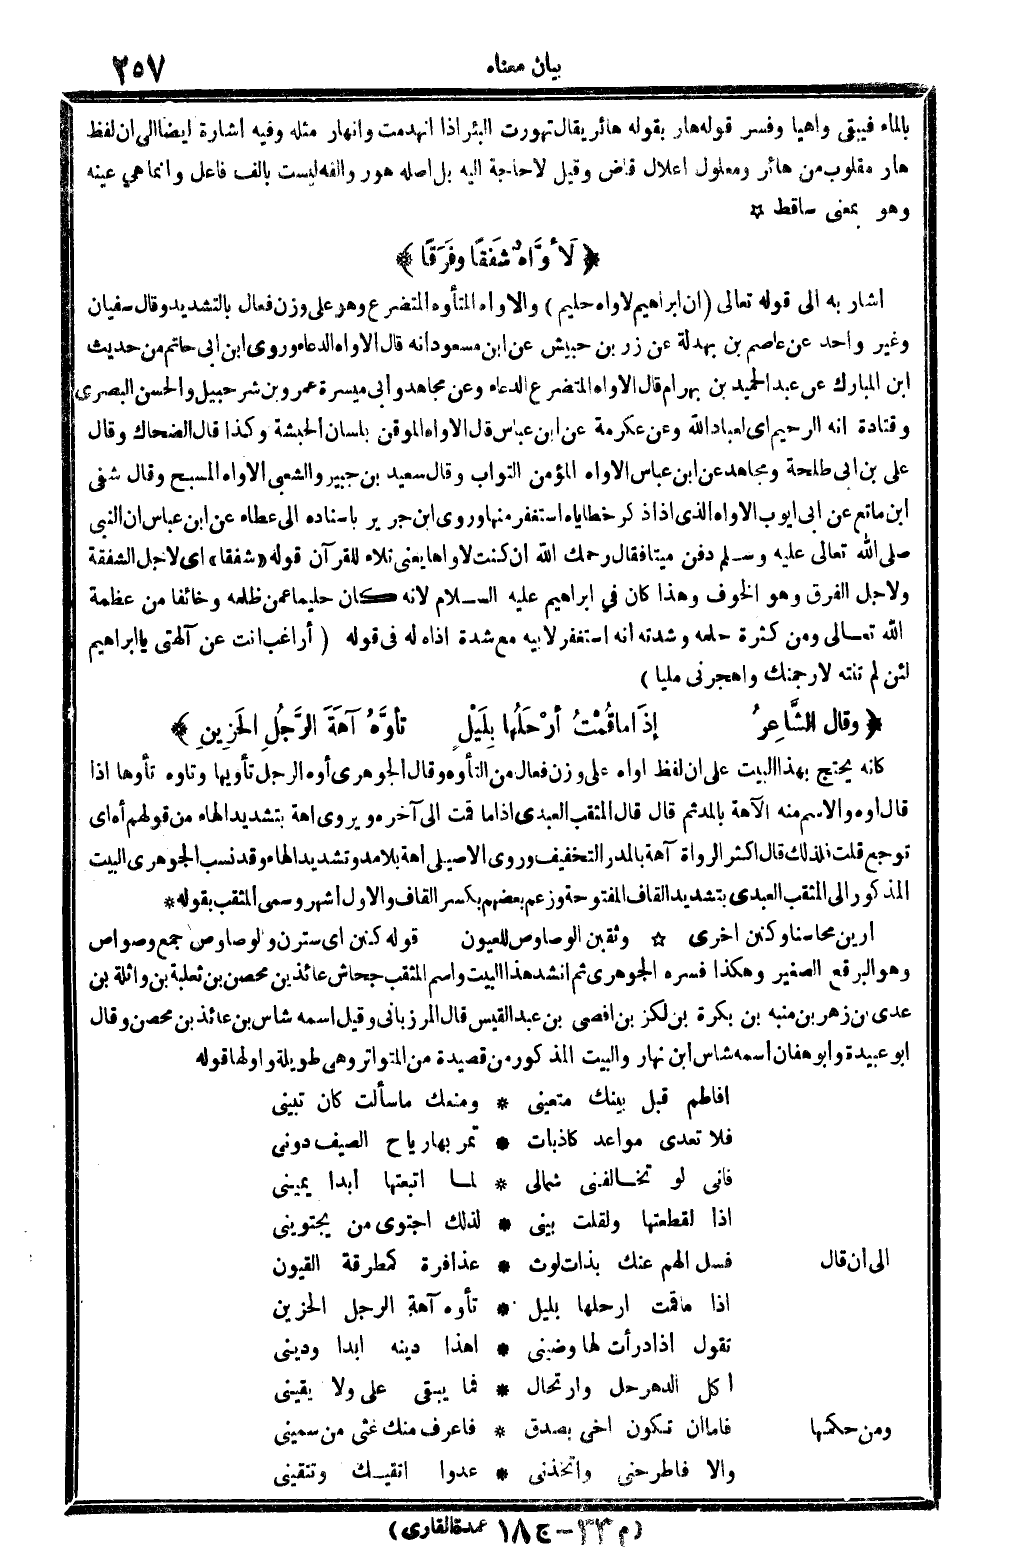 بيان معناه ٢٥٧
بالماء فيبقى واهيا وفسر قوله هار بقوله هائر يقال تهورت البئر اذا انهدمت وانهار مثله وفيه اشارة ايضا الى ان لفظ
هار مقلوب من هائر ومعلول اعلال قاض وقيل لاحاجة اليه بل اصله هور والفه ليست بالف فاعل وانما هي عينه
وهو بمعنى ساقط ☆
﴿ لَأَوَّاهٌ شَفَقًا وفَرَقًا ﴾
اشار به الى قوله تعالى (ان ابراهيم لاواه حليم) والاواه المتأوه المتضرع وهو على وزن فعال بالتشديد وقال سفيان
وغير واحد عن عاصم بن بهدلة عن زر بن حبيش عن ابن مسعود انه قال الاواه الدعاء وروى ابن ابى حاتم من حديث
ابن المبارك عن عبد الحميد بن بهرام قال الاواه المتضرع الدعاء وعن مجاهد وأبى ميسرة عمرو بن شرحبيل والحسن البصرى
وقتادة انه الرحيم اى لعباد الله وعن عكرمة عن ابن عباس قال الاواه الموقن بلسان الحبشة وكذا قال الضحاك وقال
على بن ابى طلحة ومجاهد عن ابن عباس الاواه المؤمن التواب وقال سعيد بن جبير والشعبى الاواه المسبح وقال شفى
ابن ماتع عن ابى ايوب الاواه الذى اذا ذكر خطاياه استغفر منها وروى ابن جرير باسناده الى عطاء عن ابن عباس ان النبى
صلى الله تعالى عليه وسلم دفن ميتا فقال رحمك الله ان كنت لاواها يعنى تلاء للقرآن قوله «شفقا» اى لاجل الشفقة
ولاجل الفرق وهو الخوف وهذا كان في ابراهيم عليه السلام لانه كان حليما عمن ظلمه وخائفا من عظمة
الله تعالى ومن كثرة حلمه وشدته انه استغفر لابيه مع شدة اذاه له فى قوله ( أراغب انت عن آلهتى يا ابراهيم
لئن لم تنته لارجمنك واهجرنى مليا )
﴿ وقال الشَّاعِرُ إذَا ماقُمْتُ أرْحَلُها بِلَيْلٍ تأوَّهُ آهَةَ الرَّجُلِ الحَزِينِ ﴾
كانه يحتج بهذا البيت على ان لفظ اواه على وزن فعال من التأوه وقال الجوهرى أوه الرجل تأويها وتاوه تأوها اذا
قال اوه والاسم منه الآهة بالمد ثم قال قال المثقب العبدى اذا ما قمت الى آخره ويروى اهة بتشديد الهاء من قولهم أه اى
توجع قلت فلذلك قال اكثر الرواة آهة بالمد والتخفيف وروى الاصيلى اهة بلا مد وتشديد الهاء وقد نسب الجوهرى البيت
المذكور الى المثقب العبدى بتشديد القاف المفتوحة وزعم بعضهم بكسر القاف والاول اشهر وسمى المثقب بقوله *
ارين محاسنا وكنن اخرى ☆ وثقبن الوصاوص للعيون قوله كنن اى سترن والوصاوص جمع وصواص
وهو البرقع الصغير وهكذا فسره الجوهرى ثم انشد هذا البيت واسم المثقب جحاش عائذ بن محصن بن ثعلبة بن واثلة بن
عدى بن زهر بن منبه بن بكرة بن لكز بن افصى بن عبد القيس قال المرزبانى وقيل اسمه شاس بن عائذ بن محصن وقال
ابو عبيدة وابو هفان اسمه شاس ابن نهار والبيت المذكور من قصيدة من المتواتر وهى طويلة واولها قوله
افاطم قبل بينك متعينى * ومنعك ماسألت كان تبينى
فلا تعدى مواعد كاذبات * تمر بها رياح الصيف دونى
فانى لو تخالفنى شمالى * لما اتبعتها أبدا يمينى
اذا لقطعتها ولقلت بينى * لذلك اجتوى من يجتوينى
الى أن قال فسل الهم عنك بذات لوث * عذافرة كمطرقة القيون
اذا ماقمت ارحلها بليل * تأوه آهة الرجل الحزين
تقول اذا درأت لها وضينى * اهذا دينه ابدا ودينى
أكل الدهر حل وارتحال * فما يبقى على ولا يقينى
ومن حكمها فاما ان تكون اخى بصدق * فاعرف منك غثى من سمينى
والا فاطرحنى واتخذنى * عدوا اتقيك وتتقينى
(م ٣٣ – ج ١٨ عمدة القارى)